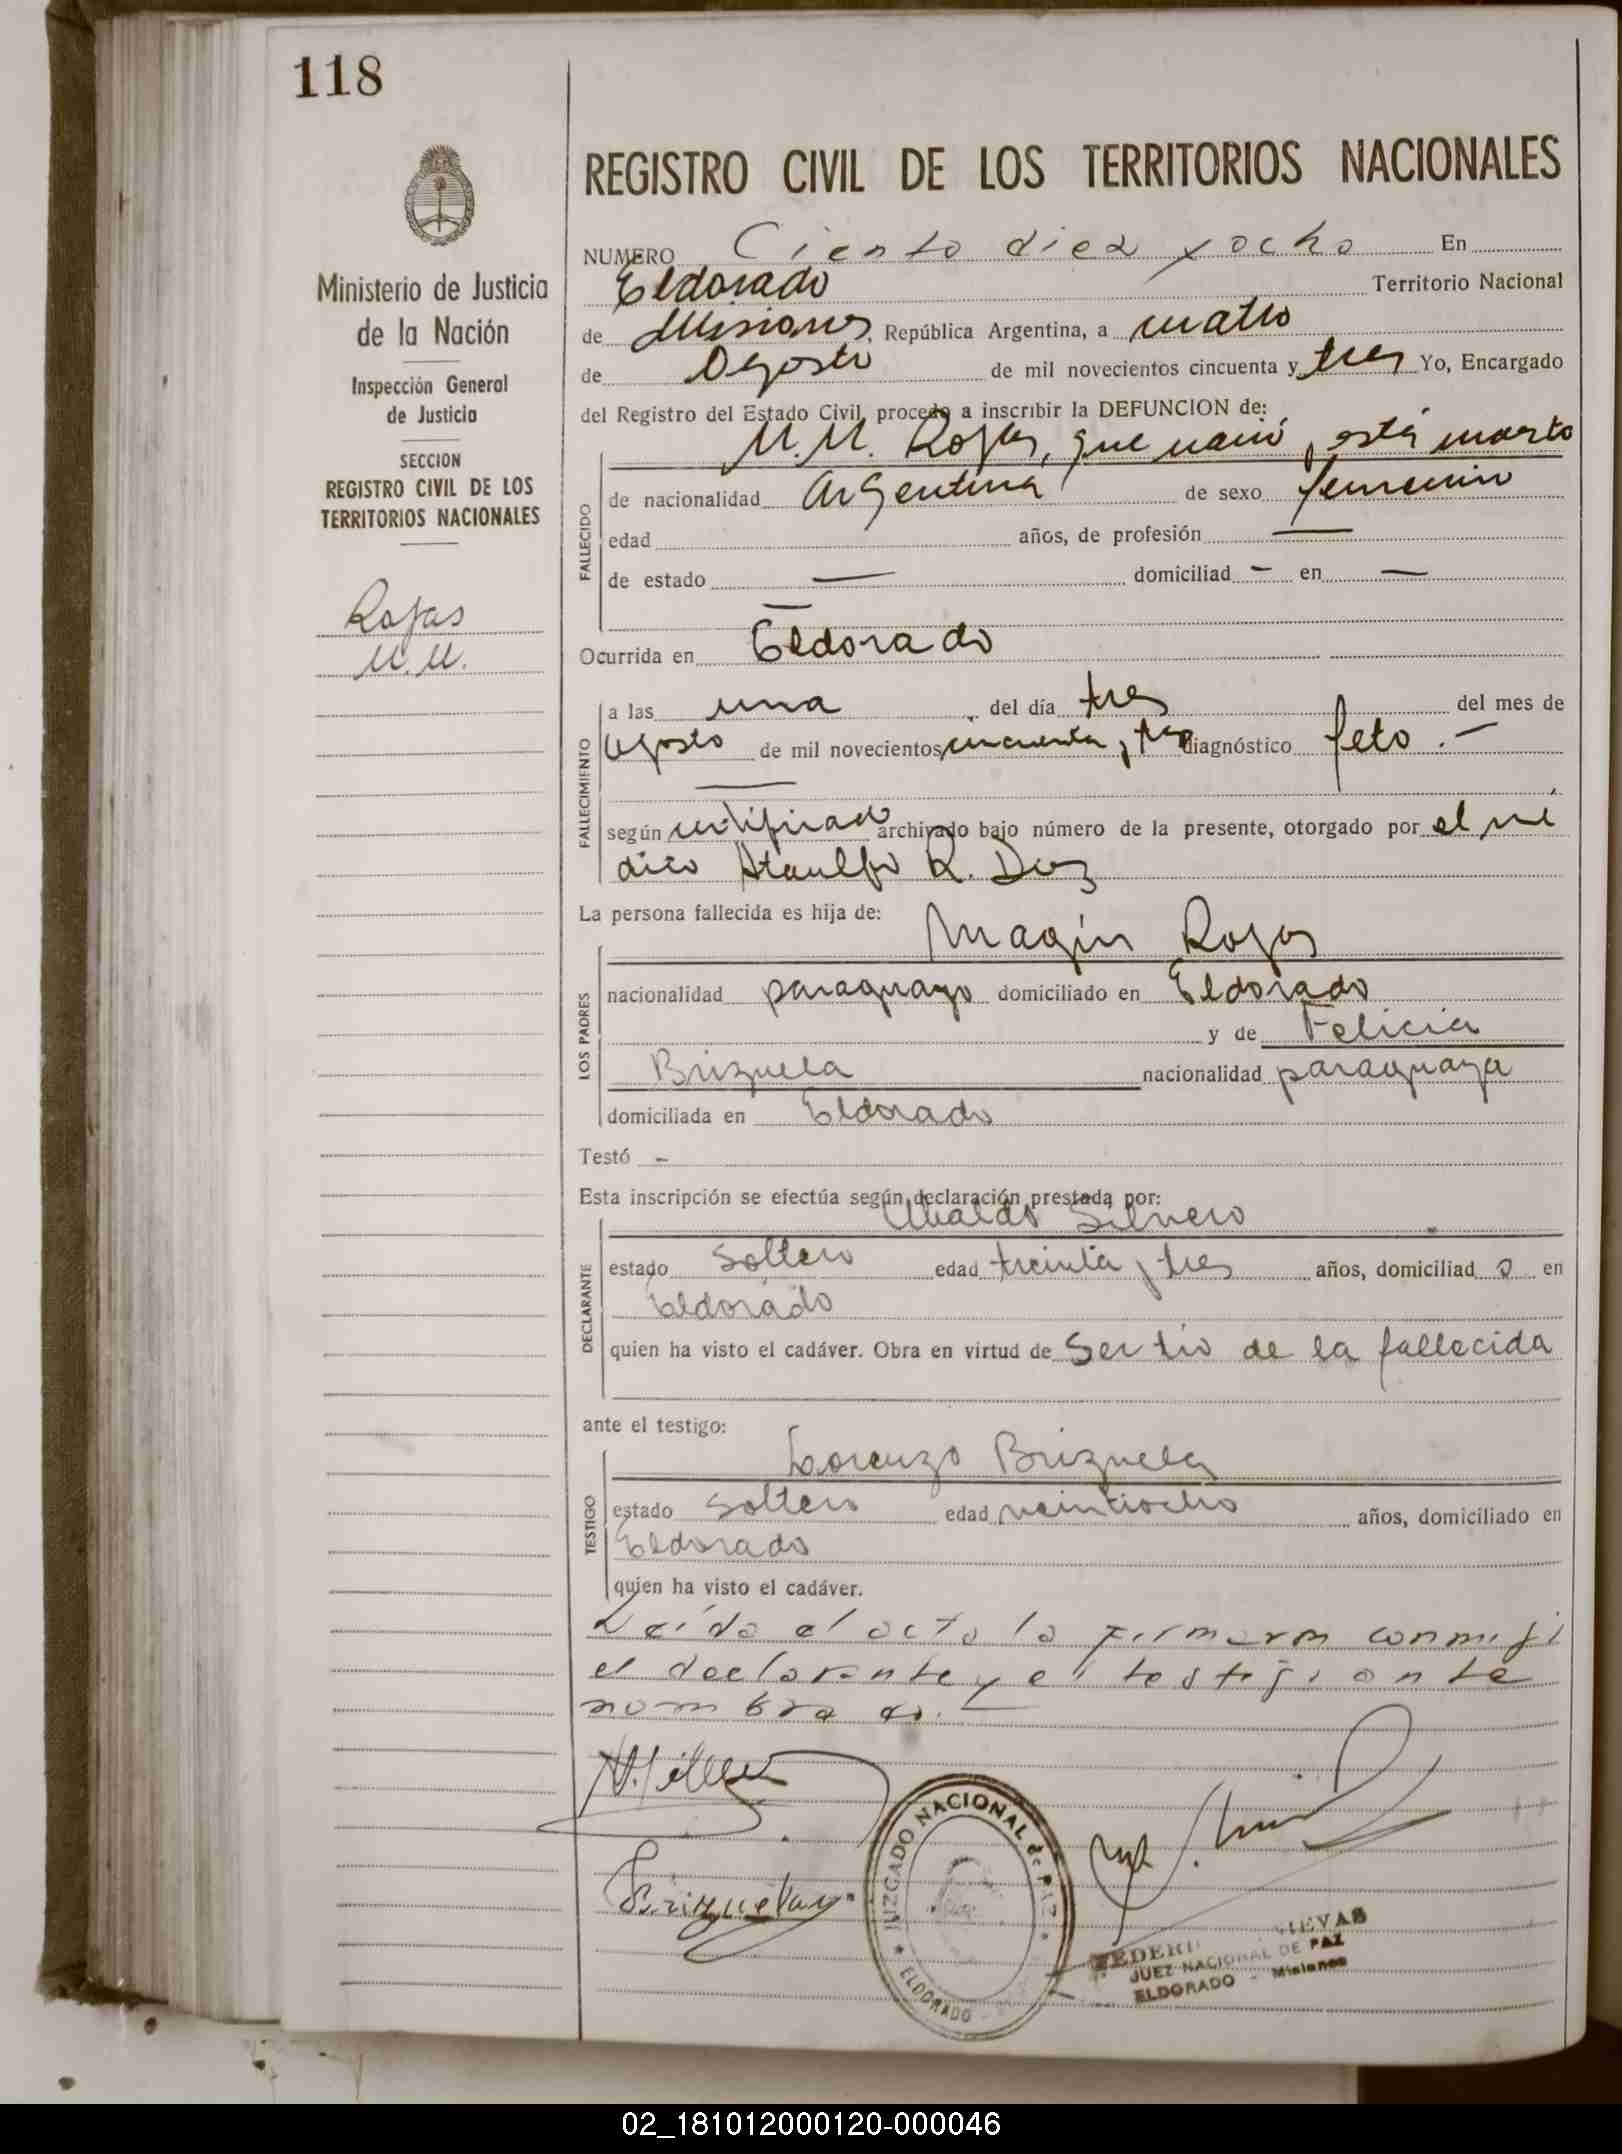 118
Ministerio de Justicia
de la Nación
Inspección General
de Justicia
SECCION
REGISTRO CIVIL DE LOS
TERRITORIOS NACIONALES
Rojas
M.M.
REGISTRO CIVIL DE LOS TERRITORIOS NACIONALES
NUMERO Ciento diez y ocho En
Eldorado Territorio Nacional
de Misiones, República Argentina, a cuatro
de Agosto de mil novecientos cincuenta y tres Yo, Encargado
del Registro del Estado Civil, procedo a inscribir la DEFUNCION de:
M.M. Rojas, que nació, está muerto
FALLECIDO
de nacionalidad Argentina de sexo femenino
edad años, de profesión —
de estado — domiciliad - en —
—
Ocurrida en Eldorado
FALLECIMIENTO
a las una del día tres del mes de
Agosto de mil novecientos cincuenta y tres diagnóstico feto .-
—
según certificado archivado bajo número de la presente, otorgado por el mé
dico Ataulfo R.
La persona fallecida es hija de:
Magín Rojas
LOS PADRES
nacionalidad paraguayo domiciliado en Eldorado
y de Felicia
Brizuela nacionalidad paraguaya
domiciliada en Eldorado
Testó -
Esta inscripción se efectúa según declaración prestada por:
Ubaldo Silvero
DECLARANTE
estado soltero edad treinta y tres años, domiciliad o en
Eldorado
quien ha visto el cadáver. Obra en virtud de ser tío de la fallecida
ante el testigo:
Lorenzo Brizuela
TESTIGO
estado soltero edad veintiocho años, domiciliado en
Eldorado
quien ha visto el cadáver.
Leída el acta la firmaron conmigo
el declarante y el testigo ante
nombrados.—
Brizuela
JUZGADO NACIONAL de PAZ
ELDORADO
JUEZ NACIONAL DE PAZ
ELDORADO - Misiones
02_181012000120-000046